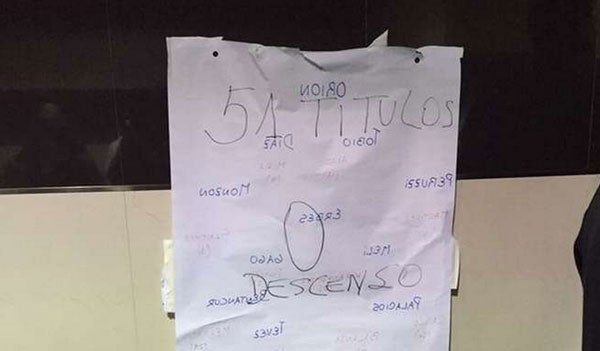 ORION
51 TITULOS
DIAZ TOBIO
MONZON PERUZZI
0 ERBES
GAGO MELI
DESCENSO
BENTANCUR PALACIOS
TEVEZ